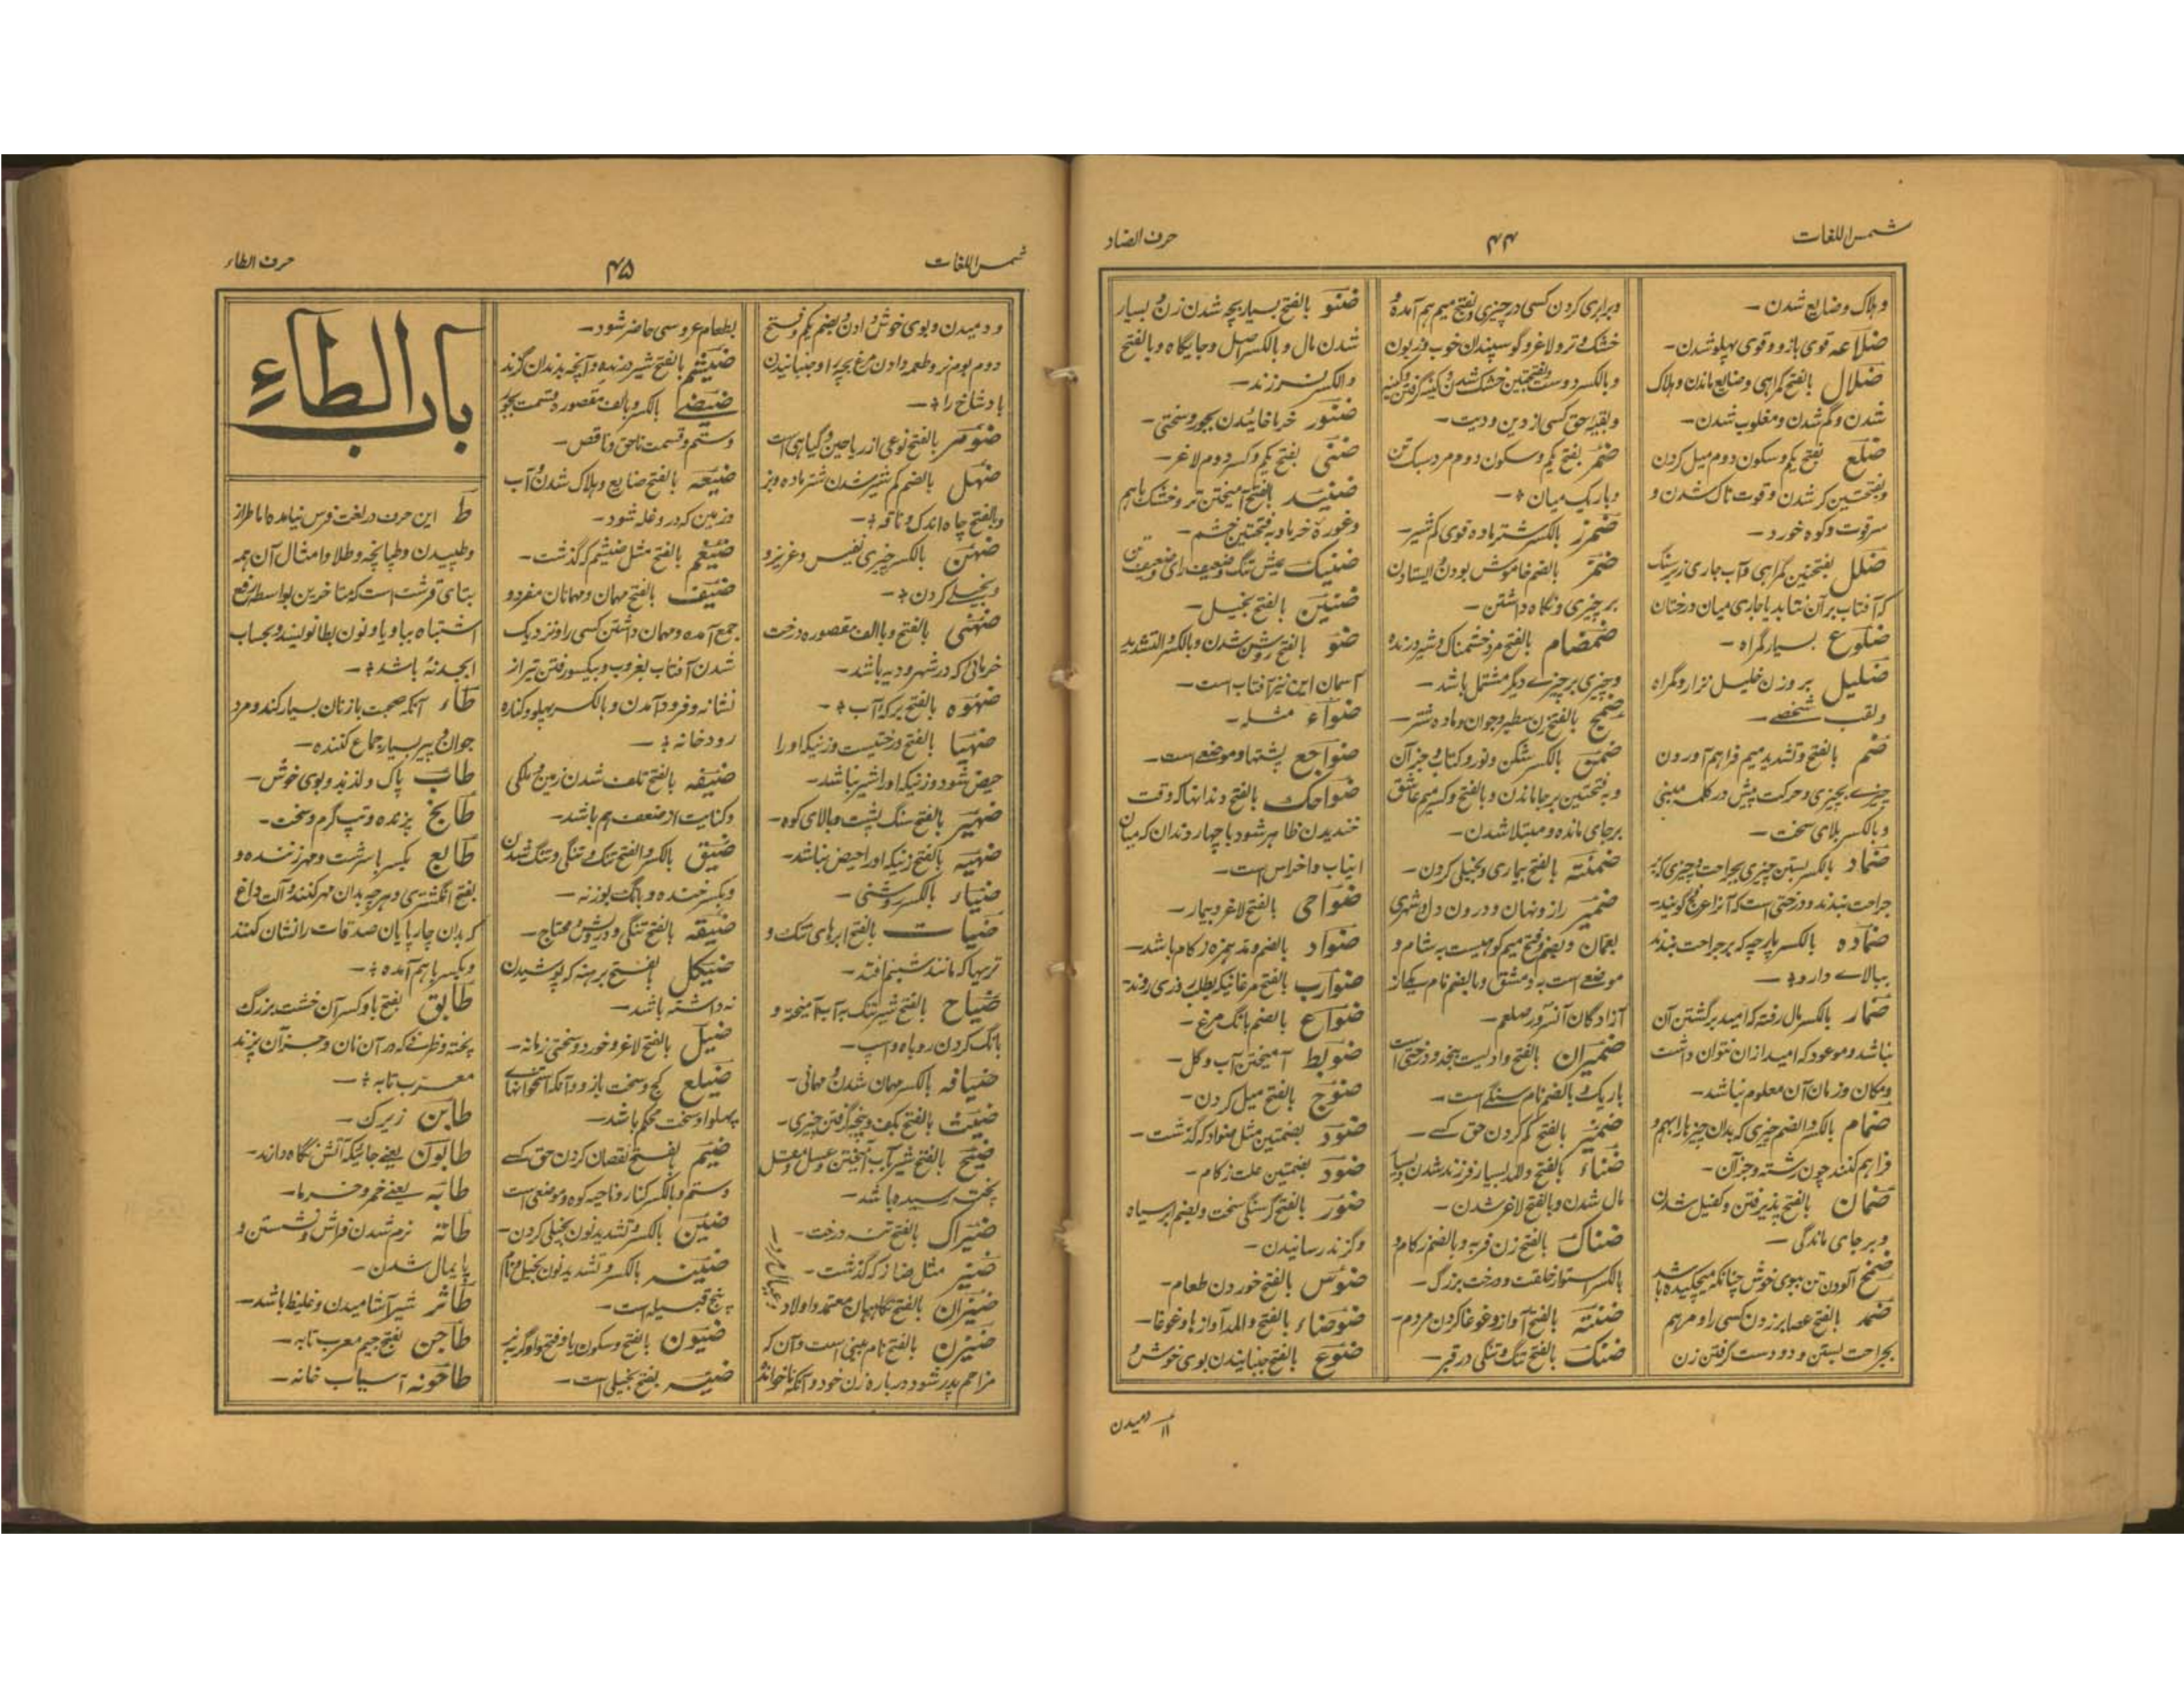 شمس اللغات
۴۴
حرف الضاد
وہلاک وضایع شدن —
ضلاعہ قوی بازو و قوی پہلو شدن —
ضلال بالفتح گمراہی وضایع ماندن وہلاک
شدن و گم شدن و مغلوب شدن —
ضلع بفتح یکم وسکون دوم میل کردن
وبفتحتین کژ شدن و قوت تاک شدن و
سرقوت وکوہ خورد —
ضلل بفتحتین گمراہی وآب جاری زیر سنگ
کہ آفتاب برآن نتابد یا جاری میان درختان
ضلوع بسیار گمراہ —
ضلیل بر وزن خلیل نزار وگمراہ
ولقب شخصے —
ضم بالفتح وتشدید میم فراہم آوردن
چیزے بچیزی وحرکت پیش در کلمہ مبنی
وبالکسر بلای سخت —
ضماد بالکسر بستن چیزی بجراحت وچیزی کہ بر
جراحت بندند و درختی است کہ آنرا عرفج گویند —
ضمادہ بالکسر پارچہ کہ بر جراحت بندند
ببالاے دارو —
ضمار بالکسر مال رفتہ کہ امید برگشتن آن
نباشد و موعود کہ امید ازان نتوان داشت
ومکان و زمان آن معلوم نباشد —
ضمام بالکسر والضم چیزی کہ بدان چیز را بہم و
فراہم کنند چون رشتہ وجزآن —
ضمان بالفتح پذیرفتن وکفیل شدن
وبر جای ماندگی —
ضمخ آلودن تن ببوی خوش چنانکہ میچکیدہ باشد
ضمد بالفتح عصا بر زدن کسی را و مرہم
بجراحت بستن و دو دست گرفتن زن
وبرابری کردن کسی در چیزی وبفتح میم ہم آمدہ و
خشک و تر ولاغر وگوسپندان خوب وزبون
وبالکسر دوست وبفتحتین خشک شدن وکینہ گرفتن وکینہ
وبقیہ حق کسی از دین و دیت —
ضمر بفتح یکم وسکون دوم مرد سبک تن
وباریک میان —
ضمرز بالکسر شتر مادہ قوی کم شیر —
ضمز بالضم خاموش بودن وایستادن
بر چیزی ونگاہ داشتن —
ضمضام بالفتح مرد خشمناک وشیر درندہ
وچیزی بر چیزے دیگر مشتمل باشد —
ضمعج بالفتح زن سطبر وجوان ومادہ شتر —
ضمن بالکسر شکن ونورد کتاب وجز آن
وبفتحتین برجا ماندن وبالفتح وکسر میم عاشق
برجای ماندہ ومبتلا شدن —
ضمنتہ بالفتح بیماری وبخیلی کردن —
ضمیر راز ونہان ودرون دل وشہری
بعمان وبضم وفتح میم کوہیست بہ شام و
موضعے است بہ دمشق وبالضم نام یکے از
آزادگان آنسرور صلعم —
ضمیران بالفتح وادیست بنجد و درختی است
باریک وبالضم نام سنگے است —
ضمیز بالفتح کم کردن حق کسے —
ضناء بالفتح والمد بسیار فرزند شدن وبسیار
مال شدن وبالفتح لاغر شدن —
ضناک بالفتح زن فربہ وبالضم زکام و
بالکسر استوار خلقت و درخت بزرگ —
ضنتہ بالفتح آواز وغوغا کردن مردم —
ضنک بالفتح تنگ وتنگی در قبر —
ضنو بالفتح بسیار بچہ شدن زن وبسیار
شدن مال وبالکسر اصل وجایگاہ وبالفتح
والکسر فرزند —
ضنور خرما خائیدن بجور وسختی —
ضنی بفتح یکم وکسر دوم لاغر —
ضنید بالفتح آمیختن تر وخشک باہم
وغورۂ خرما وبہ فتحتین خشم —
ضنیک عیش تنگ وضعیف رای وضعیف تن
ضنین بالفتح بخیل —
ضو بالفتح روشن شدن وبالکسر والتشدید
آسمان این نیز آفتاب است —
ضواء مثلہ —
ضواجع پشتہا وموضعے است —
ضواحک بالفتح دندانہا کہ وقت
خندیدن ظاہر شود یا چہار دندان کہ میان
انیاب واضراس است —
ضواحی بالفتح لاغر وبیمار —
ضواد بالضم ومد ہمزہ زکام باشد —
ضوارب بالفتح مرغانیکہ بطلب روزی روند —
ضواع بالضم بانگ مرغ —
ضوبط آمیختن آب وگل —
ضوج بالفتح میل کردن —
ضود بضمتین مثل ضواد کہ گذشت —
ضود بضمتین علت زکام —
ضور بالفتح گرسنگی سخت وبضم ابر سیاہ
وگزند رسانیدن —
ضوس بالفتح خوردن طعام —
ضوضاء بالفتح والمد آوازہا وغوغا —
ضوع بالفتح جنبانیدن بوی خوش و
دمیدن
شمس اللغات
۴۵
حرف الطاء
و دمیدن وبوی خوش دادن وبضم یکم وفتح
دوم بوم نر وطعمہ دادن مرغ بچہ را وجنبانیدن
باد شاخ را —
ضومر بالفتح نوعی از ریاحین وگیاہی است
ضہل بالضم کم شیر شدن شتر مادہ وبز
وبالفتح چاہ اندک وناقہ —
ضہن بالکسر چیزی نفیس وعزیز و
وبخیلے کردن —
ضہنی بالفتح وبالف مقصورہ درخت
خرمائی کہ در شہر ودیہ باشد —
ضہوہ بالفتح برکہ آب —
ضہیا بالفتح درختیست وزنیکہ او را
حیض شود وزنیکہ او را شیر نباشد —
ضہیر بالفتح سنگ پشت وبالای کوہ —
ضہیہ بالفتح زنیکہ او را حیض نباشد —
ضیاء بالکسر روشنی —
ضیاب بالفتح ابرہای تنک و
تریہا کہ مانند شبنم افتد —
ضیاح بالفتح شیر تنک بہ آب آمیختہ و
بانگ کردن روباہ واسپ —
ضیافہ بالکسر مہمان شدن ومہمانی —
ضیث بالفتح بکف وپنجہ گرفتن چیزی —
ضیح بالفتح شیر آب آمیختن وعسل ومقل
پختہ رسیدہ باشد —
ضیراک بالفتح تنہ درخت —
ضیز مثل ضاز کہ گذشت —
ضیزان بالفتح نگاہبان معتمد واولاد وعیال مرد —
ضیزن بالفتح نام بتی است وآن کہ
مزاحم پدر شود دربارہ زن خود وآنکہ ناخواندہ
بطعام عروسی حاضر شود —
ضیثم بالفتح شیر درندہ وآنچہ بدندان گزند
ضیضے بالکسر وبالف مقصورہ وقسمت بجور
وستم وقسمت ناحق وناقص —
ضیعہ بالفتح ضایع وہلاک شدن وآب
وزمین کہ در و غلہ شود —
ضیغم بالفتح مثل ضیثم کہ گذشت —
ضیف بالفتح مہمان ومہمانان مفرد و
جمع آمدہ ومہمان داشتن کسی را ونزدیک
شدن آفتاب بغروب وبیکسو رفتن تیر از
نشانہ وفرود آمدن وبالکسر پہلو وکنارہ
رودخانہ —
ضیفہ بالفتح تلف شدن زمین وملکی
وکنایت از ضعف ہم باشد —
ضیق بالکسر والفتح تنگ وتنگی وتنگ شدن
وبکسر خندہ وبانگ بوزنہ —
ضیقہ بالفتح تنگی ودرویش ومحتاج —
ضیکل بالفتح برہنہ کہ پوشیدن
نہ داشتہ باشد —
ضیل بالفتح لاغر وخورد وسختی زمانہ —
ضیلع کج وسخت بازو وآنکہ استخوانہاے
پہلو او سخت محکم باشد —
ضیم بفتح نقصان کردن حق کسے
وستم وبالکسر کنار وناحیہ کوہ وموضعی است
ضین بالکسر وتشدید نون بخیلی کردن —
ضینہ بالکسر وتشدید نون بخیل ونام
پنج قبیلہ است —
ضیون بالفتح وسکون یا وفتح واو گربہ نر
ضیہ بفتح بخیلی است —
باب الطاء
ط این حرف در لغت فرس نیامدہ اما طراز
وطپیدن وطپانچہ وطلا وامثال آن ہمہ
بتای قرشت است کہ متاخرین بواسطہ رفع
اشتباہ بباو یا ونون بطا نویسند وبحساب
ابجد نہ باشد —
طاء آنکہ صحبت با زنان بسیار کند ومرد
جوان وپیر بسیار جماع کنندہ —
طاب پاک ولذیذ وبوی خوش —
طابخ پزندہ وتپ گرم وسخت —
طابع بکسر با سرشت ومہر زنندہ و
بفتح انگشتری وہرچہ بدان مہر کنند وآلت داغ
کہ بدان چارپایان صدقات را نشان کنند
وبکسر با ہم آمدہ —
طابق بفتح با وکسر آن خشت بزرگ
پختہ وظرفے کہ در آن نان وجز آن پزند
معرب تابہ —
طابن زیرک —
طابون یعنے جائیکہ آتش نگاہ دارند —
طابہ یعنے خمر وخرما —
طاثہ نرم شدن فراش ونشستن و
پایمال شدن —
طاثر شیر آشامیدن وغلیظ باشد —
طاجن بفتح جیم معرب تابہ —
طاحونہ آسیاب خانہ —